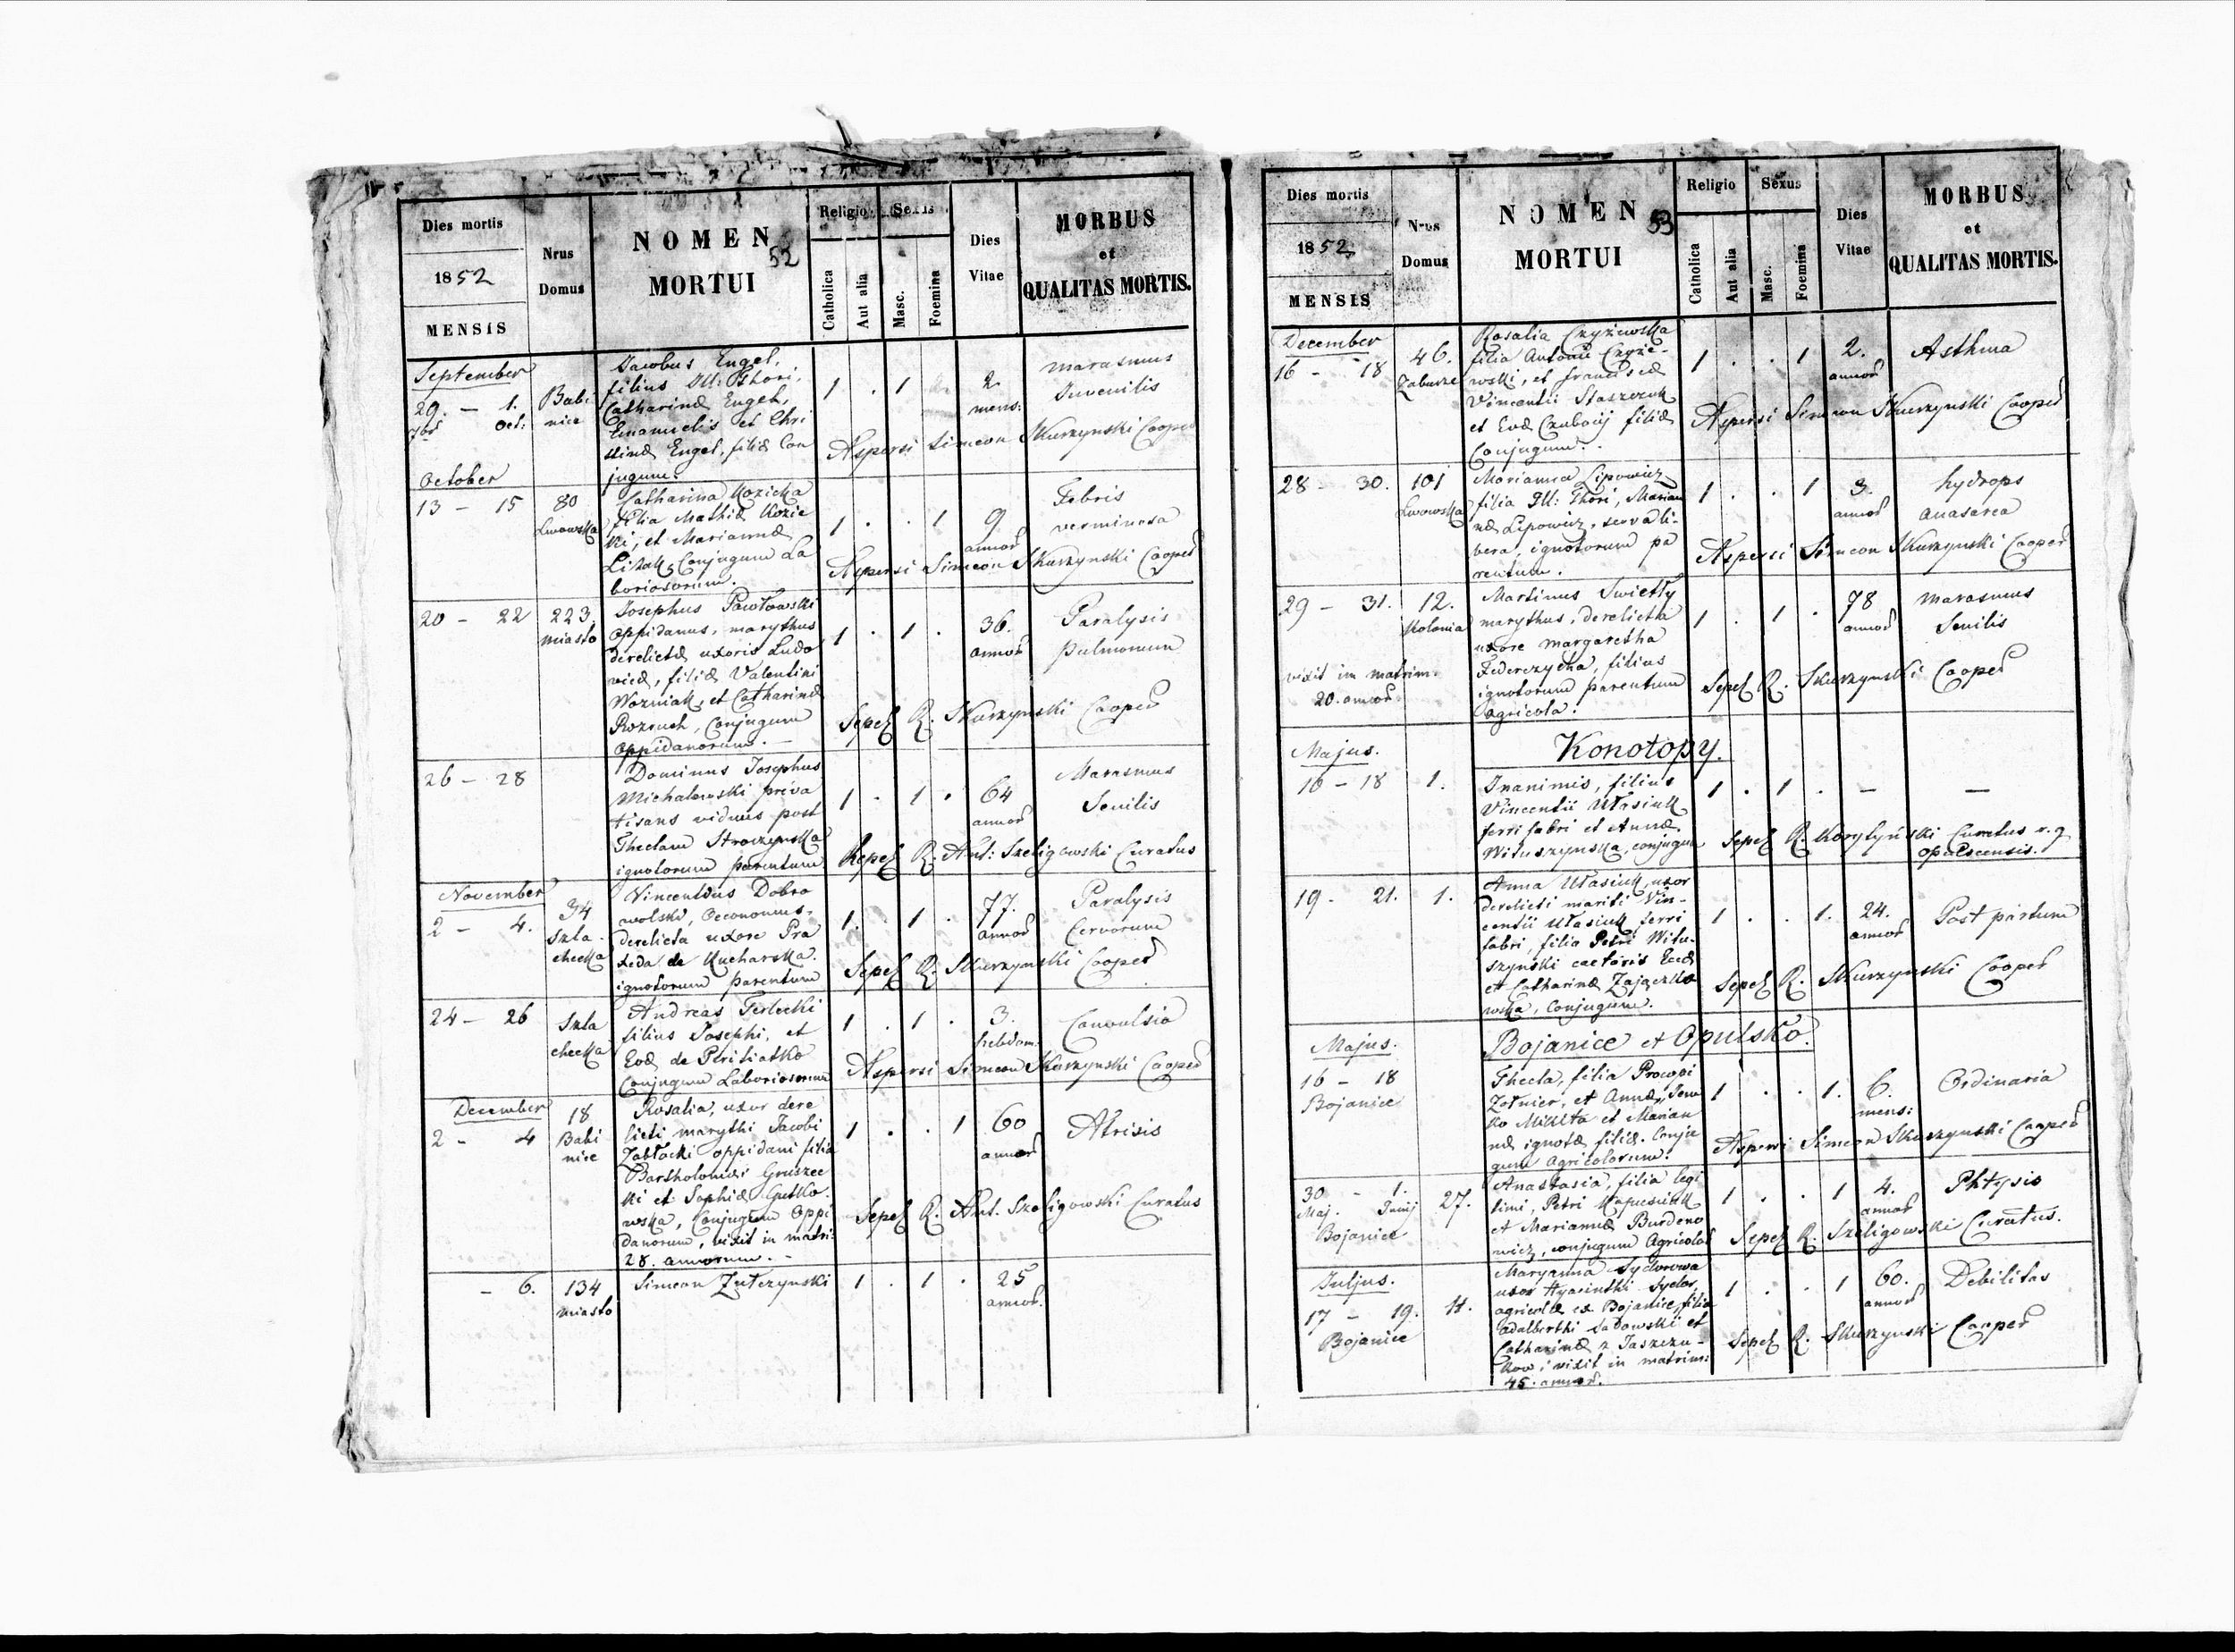 Dies mortis
1852
MENSIS
Nrus
Domus
NOMEN
MORTUI
52
Religio
Sexus
Catholica
Aut alia
Masc.
Foemina
Dies
Vitae
MORBUS
et
QUALITAS MORTIS.
September
29. - 1.
7bris Oct:
Babi
nice
Jacobus Engel,
filius Ill: Thori,
Catharinæ Engel,
Emanuelis et Chri
stinæ Engel, filiæ Con
jugum.
1 . 1
2
mens:
marasmus
Juvenilis
Aspersi Simeon Skurzynski Cooper
October
13 - 15
80
Lwowska
Catharina Kozicka
filia Mathiæ Kozic
ki, et Mariannæ
Lizak, Conjugum La
boriosorum.
1 . . 1
9
annor
Febris
verminosa
Aspersi Simeon Skurzynski Cooper
20 - 22
223.
miasto
Josephus Pawłowski
oppidanus, marythus
derelictæ uxoris Ludo
vicæ, filiæ Valentini
Wozniak, et Catharinæ
Rozruch, Conjugum
oppidanorum. -
1 . 1 .
36.
annor
Paralysis
pulmonum
Sepel R. Skurzynski Cooper
26 - 28
Dominus Josephus
Michalowski priva
tisans viduus post
Theclam Stroczynska
ignotorum parentum
1 . 1 .
64
annor
Marasmus
Senilis
Sepel R. Ant: Szeligowski Curatus
November
2 - 4.
34
Szla
checka
Vincentius Dobro
wolski, Oeconomus,
derelicta uxore Pra
xeda de Kucharska.
ignotorum parentum
1. . 1 .
77.
annor
Paralysis
Cervorum
Sepel R. Skurzynski Cooper
24 - 26
Szla
checka
Andreas Terlecki
filius Josephi, et
Evæ de
Conjugum Laboriosorum
1 . 1 .
3.
hebdom.
Convulsio
Aspersi Simeon Skurzynski Cooper
December
2 - 4
18
Babi
nice
Rosalia, uxor dere
licti marythi Jacobi
Zabłocki oppidani filia
Bartholomæi Gruszec
ki et Sophiæ Gutko
wska, Conjugum Oppi
danorum, vixit in matri:
28. annorum. -
1 . . 1
60
annor
Atrisis
Sepel R. Ant. Szeligowski Curatus
- 6.
134
miasto
Simeon Zulczynski
1 . 1 .
25
annor.
Dies mortis
1852
MENSIS
Nrus
Domus
NOMEN
MORTUI
53
Religio
Sexus
Catholica
Aut alia
Masc.
Foemina
Dies
Vitae
MORBUS
et
QUALITAS MORTIS.
December
16 - 18
46.
Zaburze
Rosalia Czyżewska
filia Antonii Czyże-
wski, et franciscæ
Vincentii Staszczuk
et Evæ Czubaij filiæ
Conjugum.
1 . . 1
2.
annor
Asthma
Aspersi Simeon Skurzynski Cooper
28 - 30.
101
Lwowska
Marianna Lipowicz
filia Ill: Thori, Marian
næ Lipowicz, serva li-
bera, ignotorum pa
rentum.
1 . . 1
3.
annor
hydrops
anasarca
Aspersi Simeon Skurzynski Cooper
29 - 31.
12.
Kolonia
vixit in matrim:
20. annor.
Martinus Swietły
marythus, derelicta
uxore margaretha
Federczycha, filius
ignotorum parentum
agricola.
1 . 1 .
78
annor
marasmus
Senilis
Sepel R. Skurzynski Cooper
Konotopy.
Majus.
16 - 18
1.
Inanimis, filius
Vincentii Ułasiuk
ferri fabri et Annæ
Wituszynska, conjugum
1 . 1 .
-
-
Sepel R. Korytyński Curatus r. g.
opulscensis.
19. 21.
1.
Anna Ułasiuk, uxor
derelicti mariti Vin-
centii Ułasiuk ferri
fabri, filia Petri Witu-
szynski
et Catharinæ Zajączko
wska, Conjugum.
1 . . 1.
24.
annor
Post partum
Sepel R. Skurzynski Cooper
Bojanice et Opulsko.
Majus.
16 - 18
Bojanice
Thecla, filia Procopi
Zołnier, et Annæ,
ko Mikita et Marian
næ ignotæ filiæ. Conju
gum agricolorum.
1 . . 1.
6.
mens:
Ordinaria
Aspersi Simeon Skurzynski Cooper
30 - 1.
Maj. Junij
Bojanice
27.
Anastasia, filia legi
timi, Petri Kapusciuk
et Mariannæ Burdeno
wicz, conjugum Agricolar
1 . . 1
4.
annor
Phtysis
Sepel R. Szeligowski Curatus.
Juljus.
17 - 19.
Bojanice
11.
Maryanna Sydorowa
uxor Hyacinthi Sydor,
agricolæ ex Bojanice, filia
adalberthi Sadowski et
Catharinæ z Jaszczu-
kow, vixit in matrim:
45. annor.
1 . . 1
60.
annor
Debilitas
Sepel R. Skurzynski Cooper